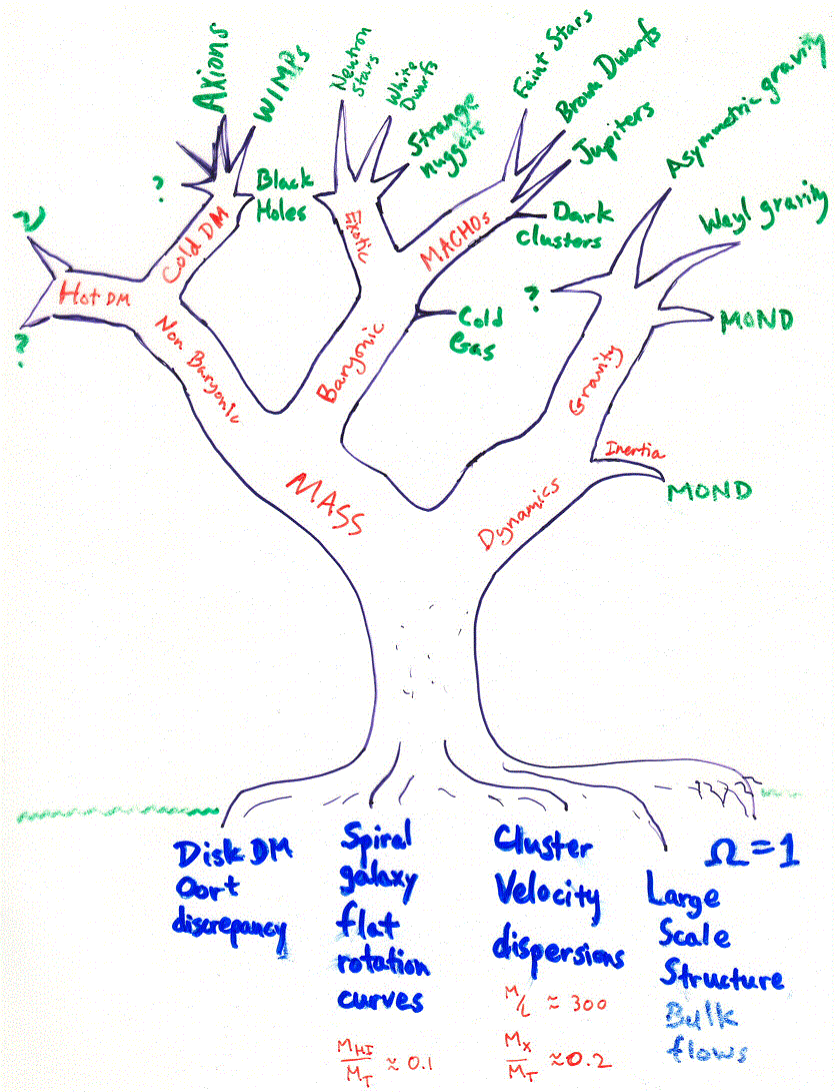 Axions
WIMPs
Neutron
Stars
White
Dwarfs
Strange
nuggets
Faint Stars
Brown Dwarfs
Jupiters
Asymmetric gravity
Weyl gravity
?
Black
Holes
Dark
clusters
ν
?
Cold DM
Hot DM
Exotic
MACHOs
?
MOND
Cold
Gas
Non Baryonic
Baryonic
Gravity
Inertia
MOND
MASS
Dynamics
Disk DM
Oort
discrepancy
Spiral
galaxy
flat
rotation
curves
M_HI/M_T ≈ 0.1
Cluster
Velocity
dispersions
M/L ≈ 300
M_X/M_T ≈ 0.2
Ω = 1
Large
Scale
Structure
Bulk
flows